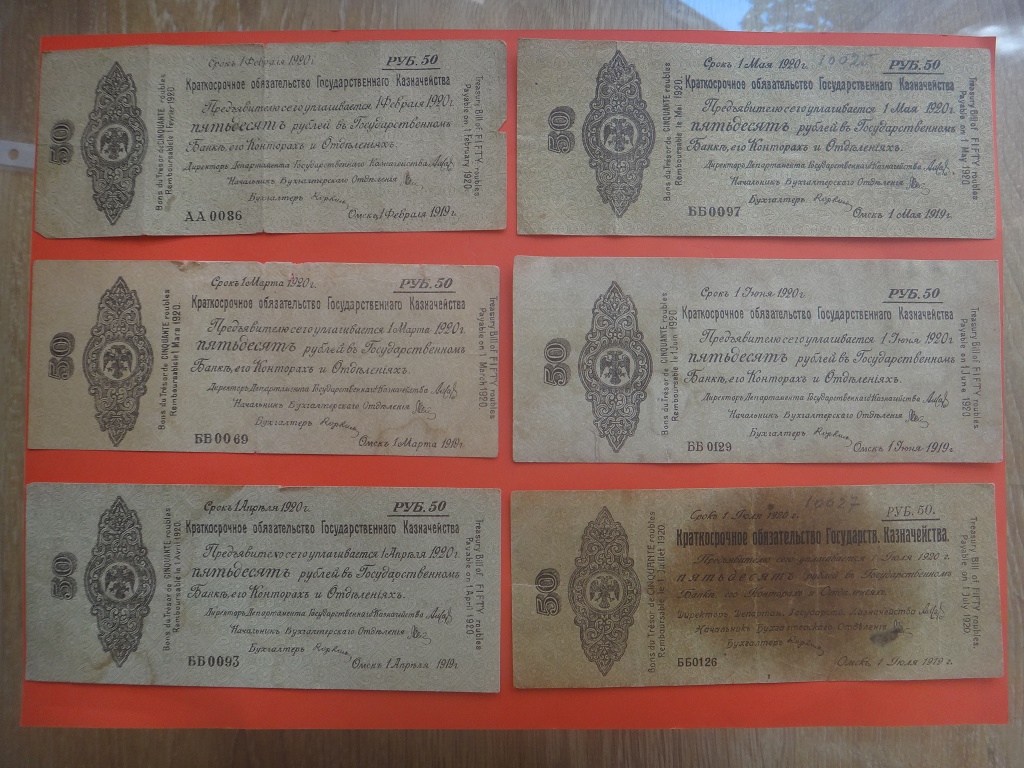 Срокъ 1 Февраля 1920 г.
РУБ. 50
Краткосрочное обязательство Государственнаго Казначейства
Предъявителю сего уплачивается 1 Февраля 1920 г.
пятьдесятъ рублей въ Государственномъ
Банкѣ, его Конторахъ и Отдѣленіяхъ.
Директоръ Департамента Государственнаго Казначейства
Начальникъ Бухгалтерскаго Отдѣленія
Бухгалтеръ
АА 0086
Омскъ, 1 Февраля 1919 г.
50
Bons du Trésor de CINQUANTE roubles
Remboursable le 1 Fevrier 1920.
Treasury Bill of FIFTY roubles
Payable on 1 February 1920.
Срокъ 1 Мая 1920 г.
РУБ. 50
Краткосрочное обязательство Государственнаго Казначейства
Предъявителю сего уплачивается 1 Мая 1920 г.
пятьдесятъ рублей въ Государственномъ
Банкѣ, его Конторахъ и Отдѣленіяхъ.
Директоръ Департамента Государственнаго Казначейства
Начальникъ Бухгалтерскаго Отдѣленія
Бухгалтеръ
ББ 0097
Омскъ 1 Мая 1919 г.
50
Bons du Trésor de CINQUANTE roubles
Remboursable le 1 Mai 1920.
Treasury Bill of FIFTY roubles
Payable on 1 May 1920.
Срокъ 1 Марта 1920 г.
РУБ. 50
Краткосрочное обязательство Государственнаго Казначейства
Предъявителю сего уплачивается 1 Марта 1920 г.
пятьдесятъ рублей въ Государственномъ
Банкѣ, его Конторахъ и Отдѣленіяхъ.
Директоръ Департамента Государственнаго Казначейства
Начальникъ Бухгалтерскаго Отдѣленія
Бухгалтеръ
ББ 0069
Омскъ 1 Марта 1919 г.
50
Bons du Trésor de CINQUANTE roubles
Remboursable le 1 Mars 1920.
Treasury Bill of FIFTY roubles
Payable on 1 March 1920
Срокъ 1 Іюня 1920 г.
РУБ. 50
Краткосрочное обязательство Государственнаго Казначейства
Предъявителю сего уплачивается 1 Іюня 1920 г.
пятьдесятъ рублей въ Государственномъ
Банкѣ, его Конторахъ и Отдѣленіяхъ.
Директоръ Департамента Государственнаго Казначейства
Начальникъ Бухгалтерскаго Отдѣленія
Бухгалтеръ
ББ 0129
Омскъ 1 Іюня 1919 г.
50
Bons du Trésor de CINQUANTE roubles
Remboursable le 1 Juin 1920.
Treasury Bill of FIFTY roubles
Payable on 1 June 1920
Срокъ 1 Апрѣля 1920 г.
РУБ. 50
Краткосрочное обязательство Государственнаго Казначейства
Предъявителю сего уплачивается 1 Апрѣля 1920 г.
пятьдесятъ рублей въ Государственномъ
Банкѣ, его Конторахъ и Отдѣленіяхъ.
Директоръ Департамента Государственнаго Казначейства
Начальникъ Бухгалтерскаго Отдѣленія
Бухгалтеръ
ББ 0093
Омскъ 1 Апрѣля 1919 г.
50
Bons du Trésor de CINQUANTE roubles
Remboursable le 1 Avril 1920.
Treasury Bill of FIFTY roubles
Payable on 1 April 1920
10027
Срокъ 1 Іюля 1920 г.
РУБ. 50.
Краткосрочное обязательство Государств. Казначейства.
Предъявителю сего уплачивается 1 Іюля 1920 г.
пятьдесятъ рублей въ Государственномъ
Банкѣ, его Конторахъ и Отдѣленіяхъ.
Директоръ Департам. Государств. Казначейства
Начальникъ Бухгалтерскаго Отдѣленія
Бухгалтеръ
ББ 0126
Омскъ, 1 Іюля 1919 г.
50
Bons du Trésor de CINQUANTE roubles
Remboursable le 1 Juillet 1920.
Treasury Bill of FIFTY roubles
Payable on 1 July 1920